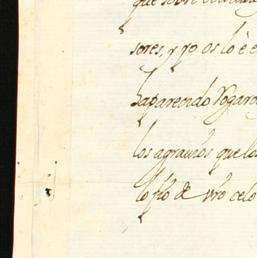 que sobre
sores, y yo os lo è e
ha parendo Rogaros
los agrauios que los
lo fio de vro celo